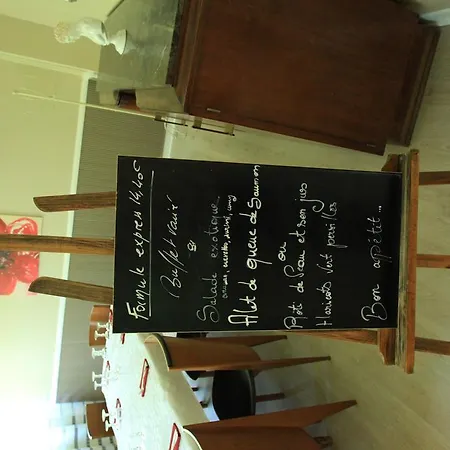 Formule express 14,40€
Buffet varié
&
Salade exotique
ananas, crevettes, surimi, curry
Filet de queue de Saumon
ou
Rôti de Veau et son jus
Haricots Vert persillés
Bon appétit...